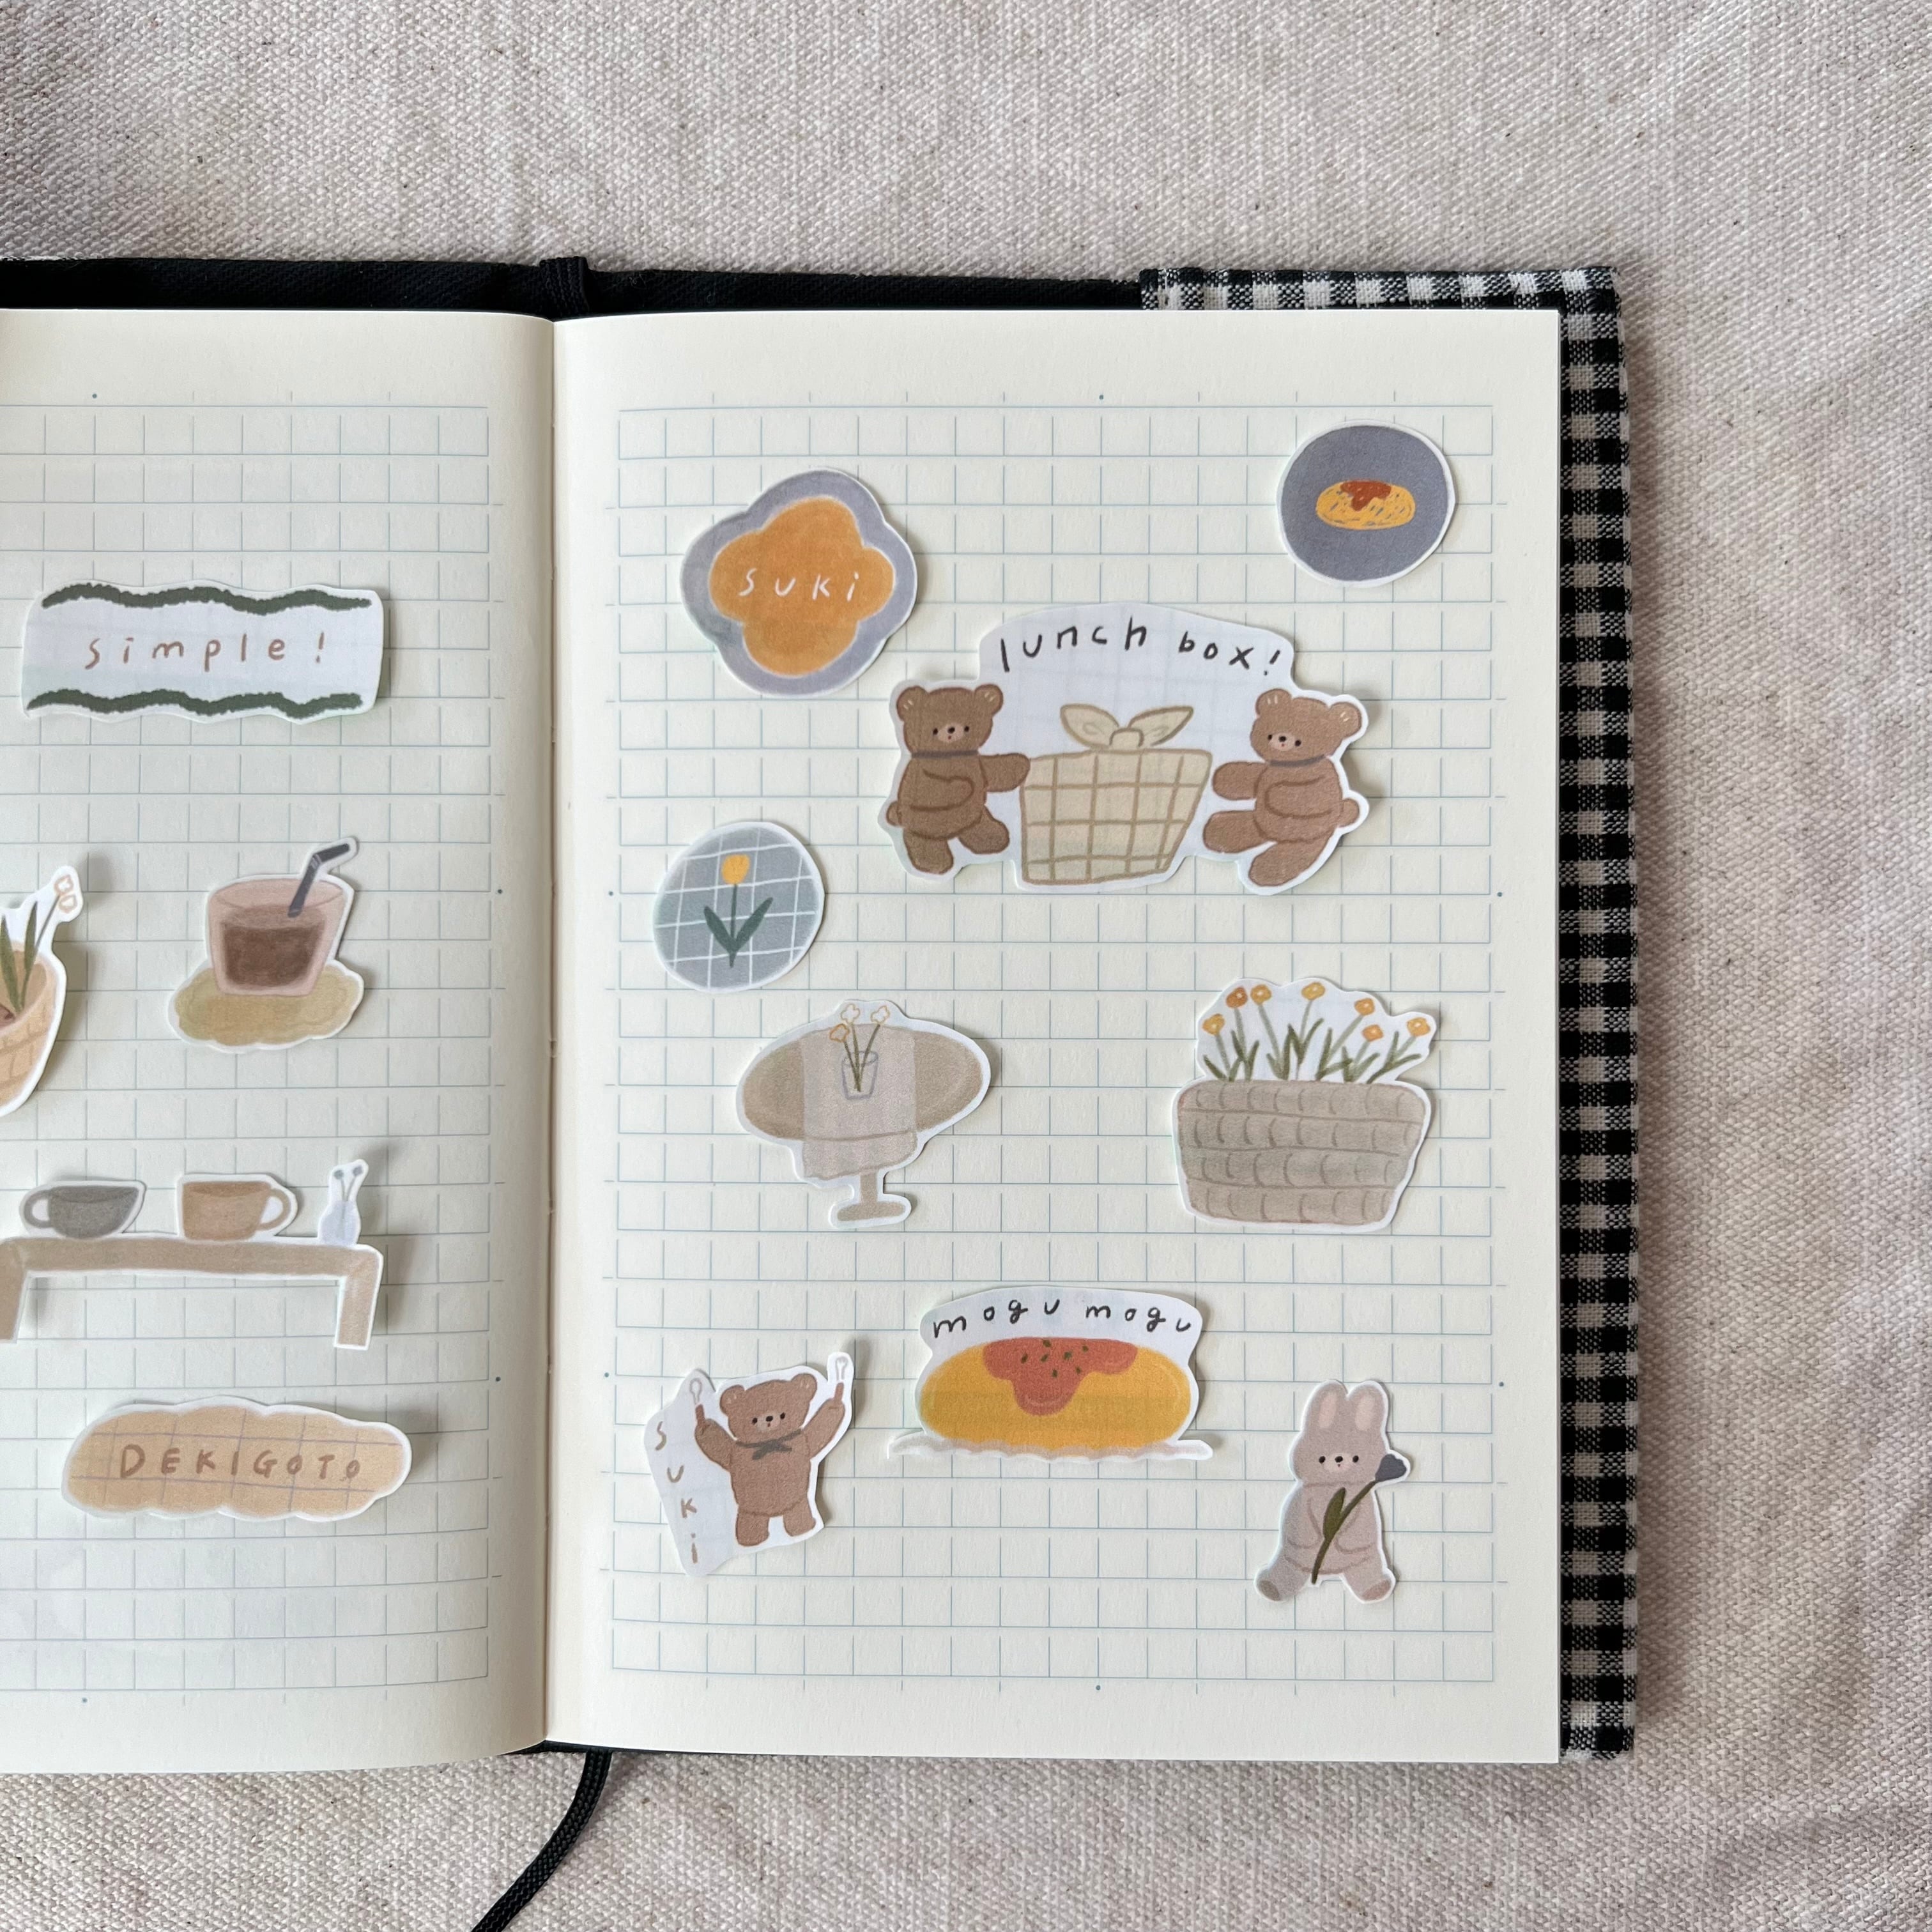 simple!
DEKIGOTO
SUKi
lunch box!
mogu mogu
SUKi